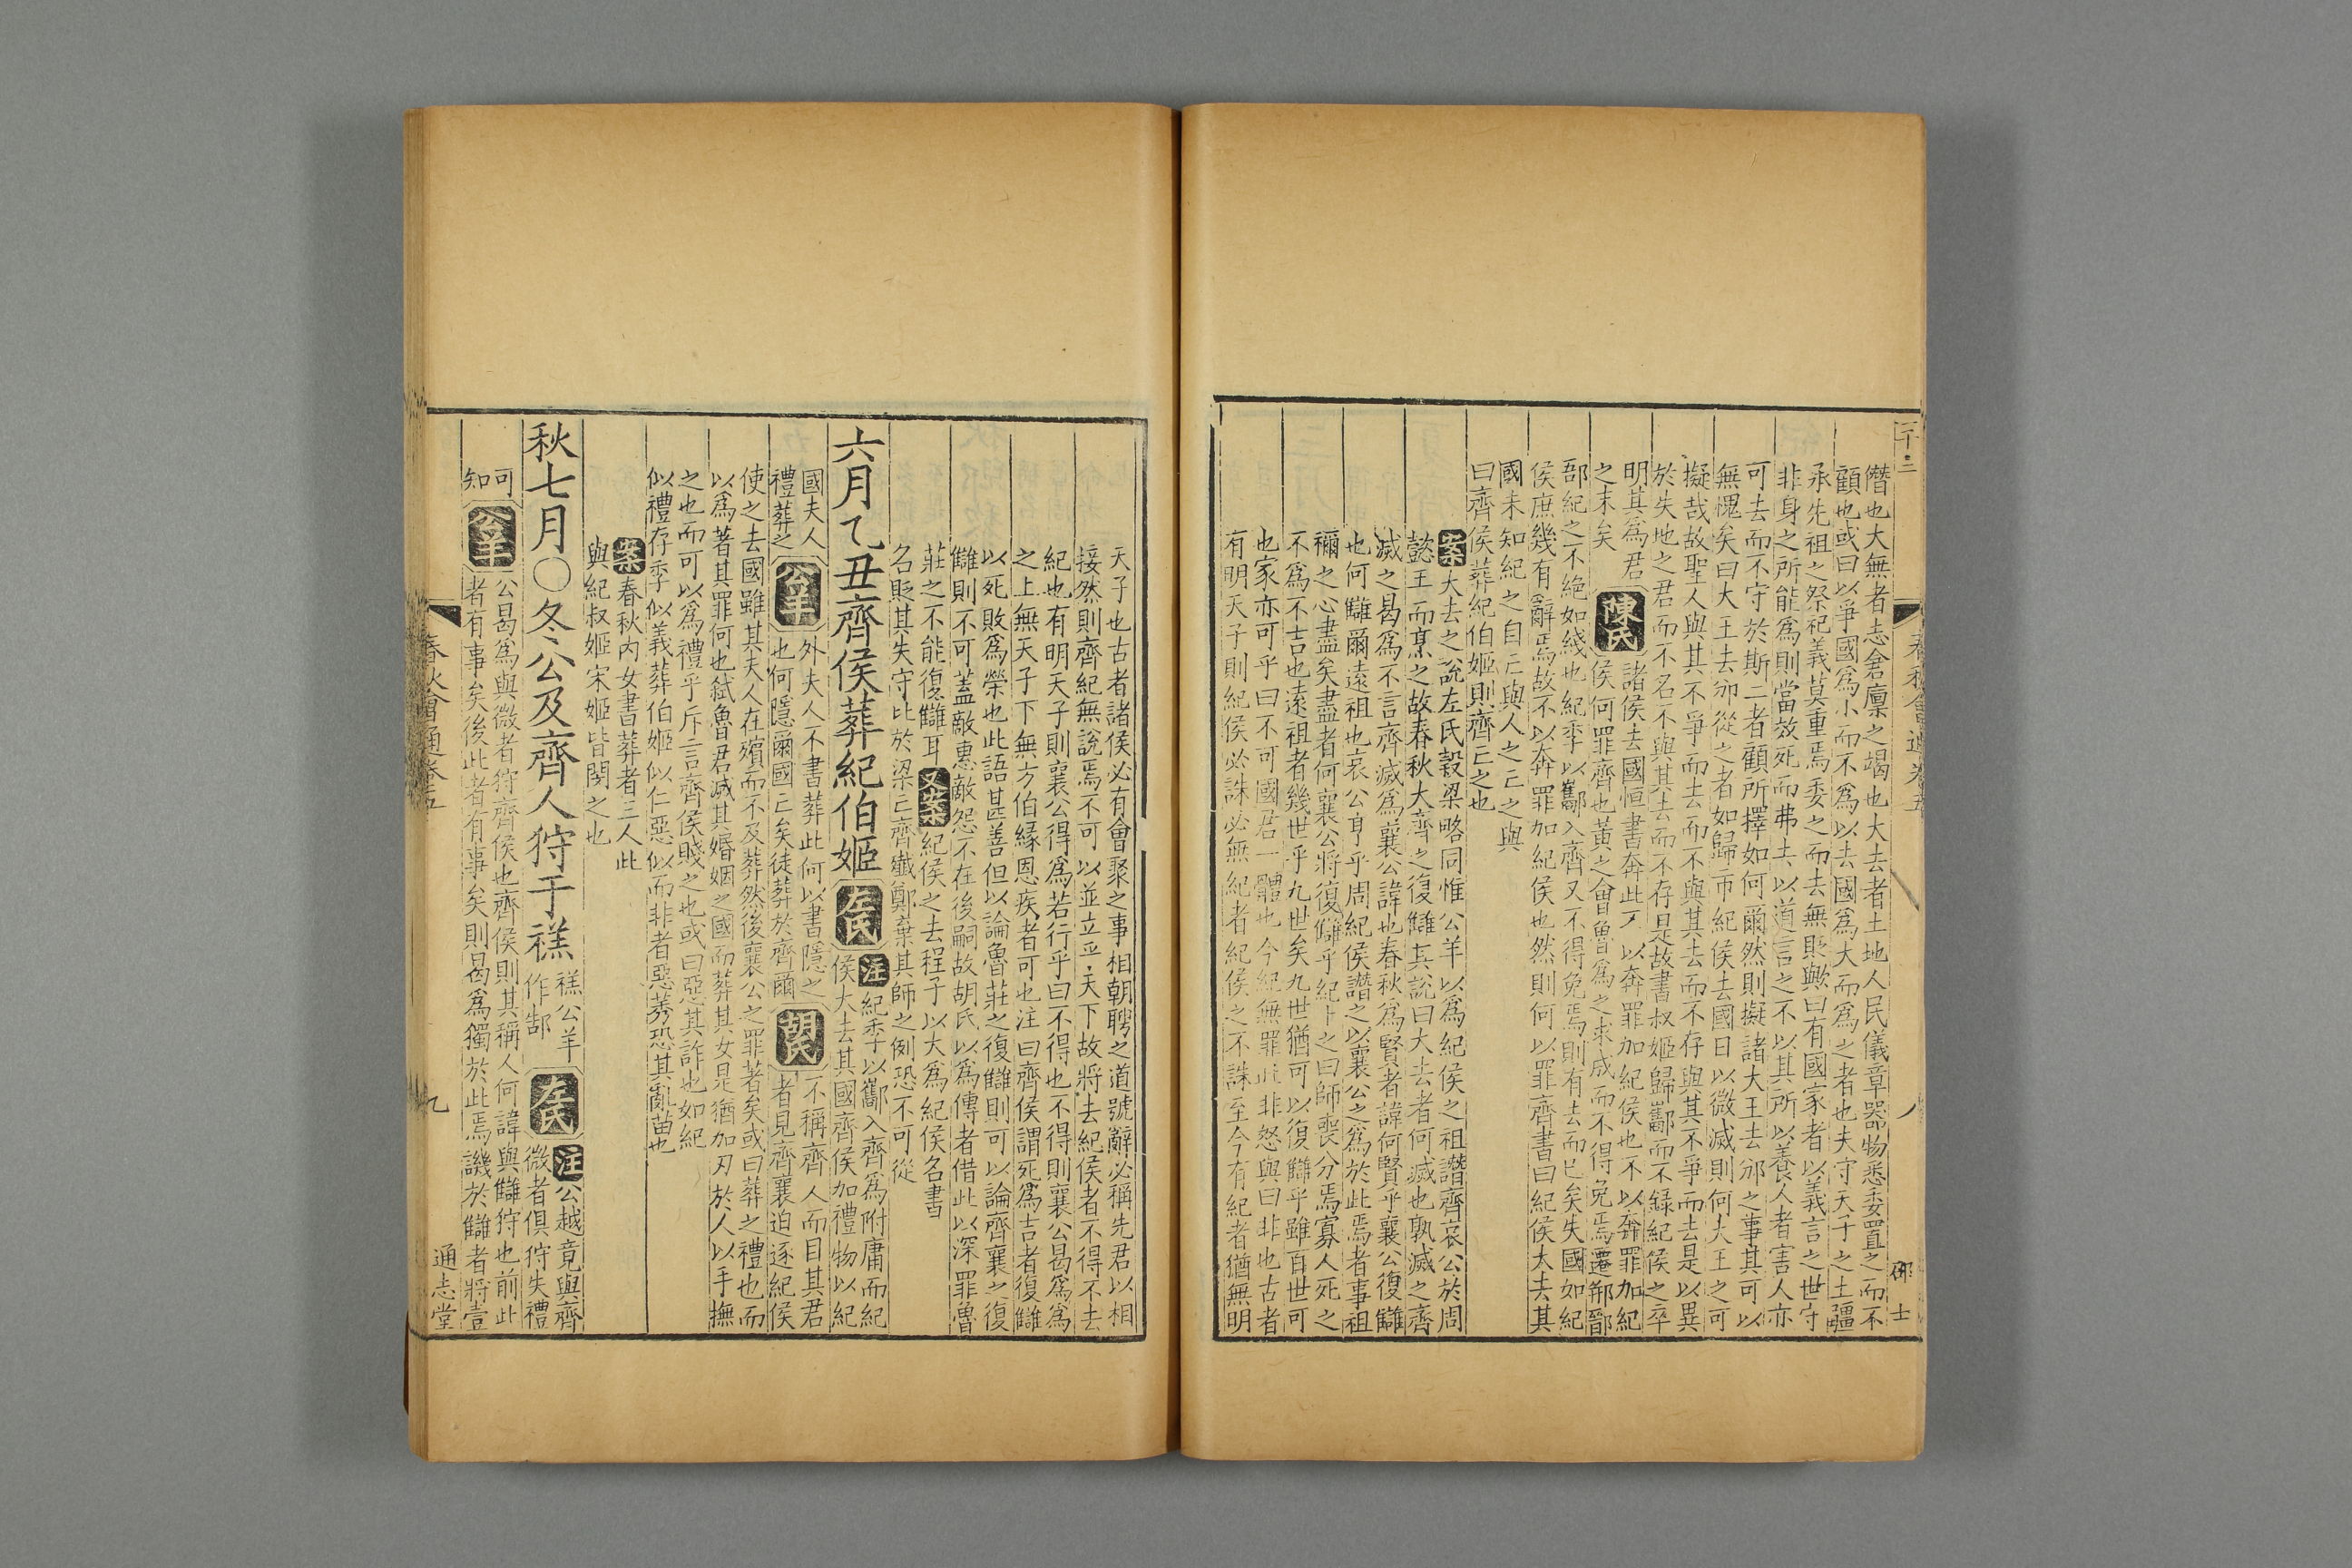 春秋會通卷五
僭也大無者志倉廩之竭也大去者土地人民儀章器物悉委置之而不
顧也或曰以爭國爲小而不爲以去國爲大而爲之者也夫守天子之土疆
承先祖之祭祀義莫重焉委之而去無貶歟曰有國家者以義言之世守
非身之所能爲則當效死而弗去以道言之不以其所以養人者害人亦
可去而不守於斯二者顧所擇如何爾然則擬諸大王去邠之事其可以
無愧矣曰大王去邠從之者如歸市紀侯去國日以微滅則何大王之可
擬哉故聖人與其不爭而去而不與其去而不存與其不爭而去是以異
於失地之君而不名不與其去而不存是故書叔姬歸酅而不録紀侯之卒
明其爲君之末矣
陳氏
諸侯去國恒書奔此不以奔罪加紀
侯何罪齊也黃之會魯爲之求成而不得免焉遷郱鄑
郚紀之不絶如綫也紀季以酅入齊又不得免焉則有去而已矣失國如紀
侯庶幾有辭焉故不以奔罪加紀侯也然則何以罪齊書曰紀侯大去其
國未知紀之自亡與人之亡之與
曰齊侯葬紀伯姬則齊亡之也
案
大去之說左氏穀梁略同惟公羊以爲紀侯之祖譖齊哀公於周
懿王而烹之故春秋大齊之復讎其說曰大去者何滅也孰滅之齊
滅之曷爲不言齊滅爲襄公諱也春秋爲賢者諱何賢乎襄公復讎
也何讎爾遠祖也哀公亨乎周紀侯譖之以襄公之爲於此焉者事祖
禰之心盡矣盡者何襄公將復讎乎紀卜之曰師喪分焉寡人死之
不爲不吉也遠祖者幾世乎九世矣九世猶可以復讎乎雖百世可
也家亦可乎曰不可國君一體也今紀無罪此非怒與曰非也古者
有明天子則紀侯必誅必無紀者紀侯之不誅至今有紀者猶無明
天子也古者諸侯必有會聚之事相朝聘之道號辭必稱先君以相
接然則齊紀無說焉不可以並立乎天下故將去紀侯者不得不去
紀也有明天子則襄公得爲若行乎曰不得也不得則襄公曷爲爲
之上無天子下無方伯緣恩疾者可也注曰齊侯謂死爲吉者復讎
以死敗爲榮也此語甚善但以論魯莊之復讎則可以論齊襄之復
讎則不可蓋敵惠敵怨不在後嗣故胡氏以爲傳者借此以深罪魯
莊之不能復讎耳
又案
紀侯之去程子以大爲紀侯名書
名貶其失守比於梁亡齊殲鄭棄其師之例恐不可從
六月乙丑齊侯葬紀伯姬
左氏
注
紀季以酅入齊爲附庸而紀
侯大去其國齊侯加禮物以紀
國夫人
禮葬之
公羊
外夫人不書葬此何以書隱之
也何隱爾國亡矣徒葬於齊爾
胡氏
不稱齊人而目其君
者見齊襄迫逐紀侯
使之去國雖其夫人在殯而不及葬然後襄公之罪著矣或曰葬之禮也而
以爲著其罪何也弒魯君滅其婚姻之國而葬其女是猶加刃於人以手撫
之也而可以爲禮乎斥言齊侯賤之也或曰惡其詐也如紀
似禮存季似義葬伯姬似仁惡似而非者惡莠恐其亂苗也
案
春秋內女書葬者三人此
與紀叔姬宋姬皆閔之也
秋七月〇冬公及齊人狩于禚
禚公羊
作郜
左氏
注
公越竟與齊
微者俱狩失禮
可
知
公羊
公曷爲與微者狩齊侯也齊侯則其稱人何諱與讎狩也前此
者有事矣後此者有事矣則曷爲獨於此焉譏於讎者將壹
春秋會通卷五
九
通志堂